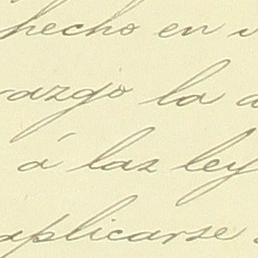 hecho en
razgo la
á las ley
aplicarse